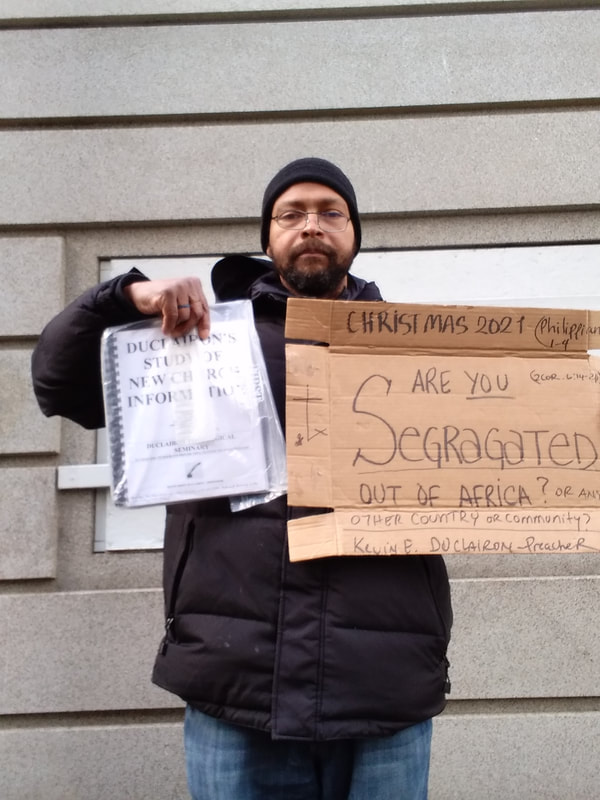 DUCLAIRON'S
STUDY OF
NEW CHURCH
INFORMATION
SEMINARY
CHRISTMAS 2021 (Philippian
1-9
ARE YOU
SEGRAGATED
OUT OF AFRICA? OR ANY
OTHER COUNTRY OR Community?
KEVIN E. DUCLAIRON-Preacher